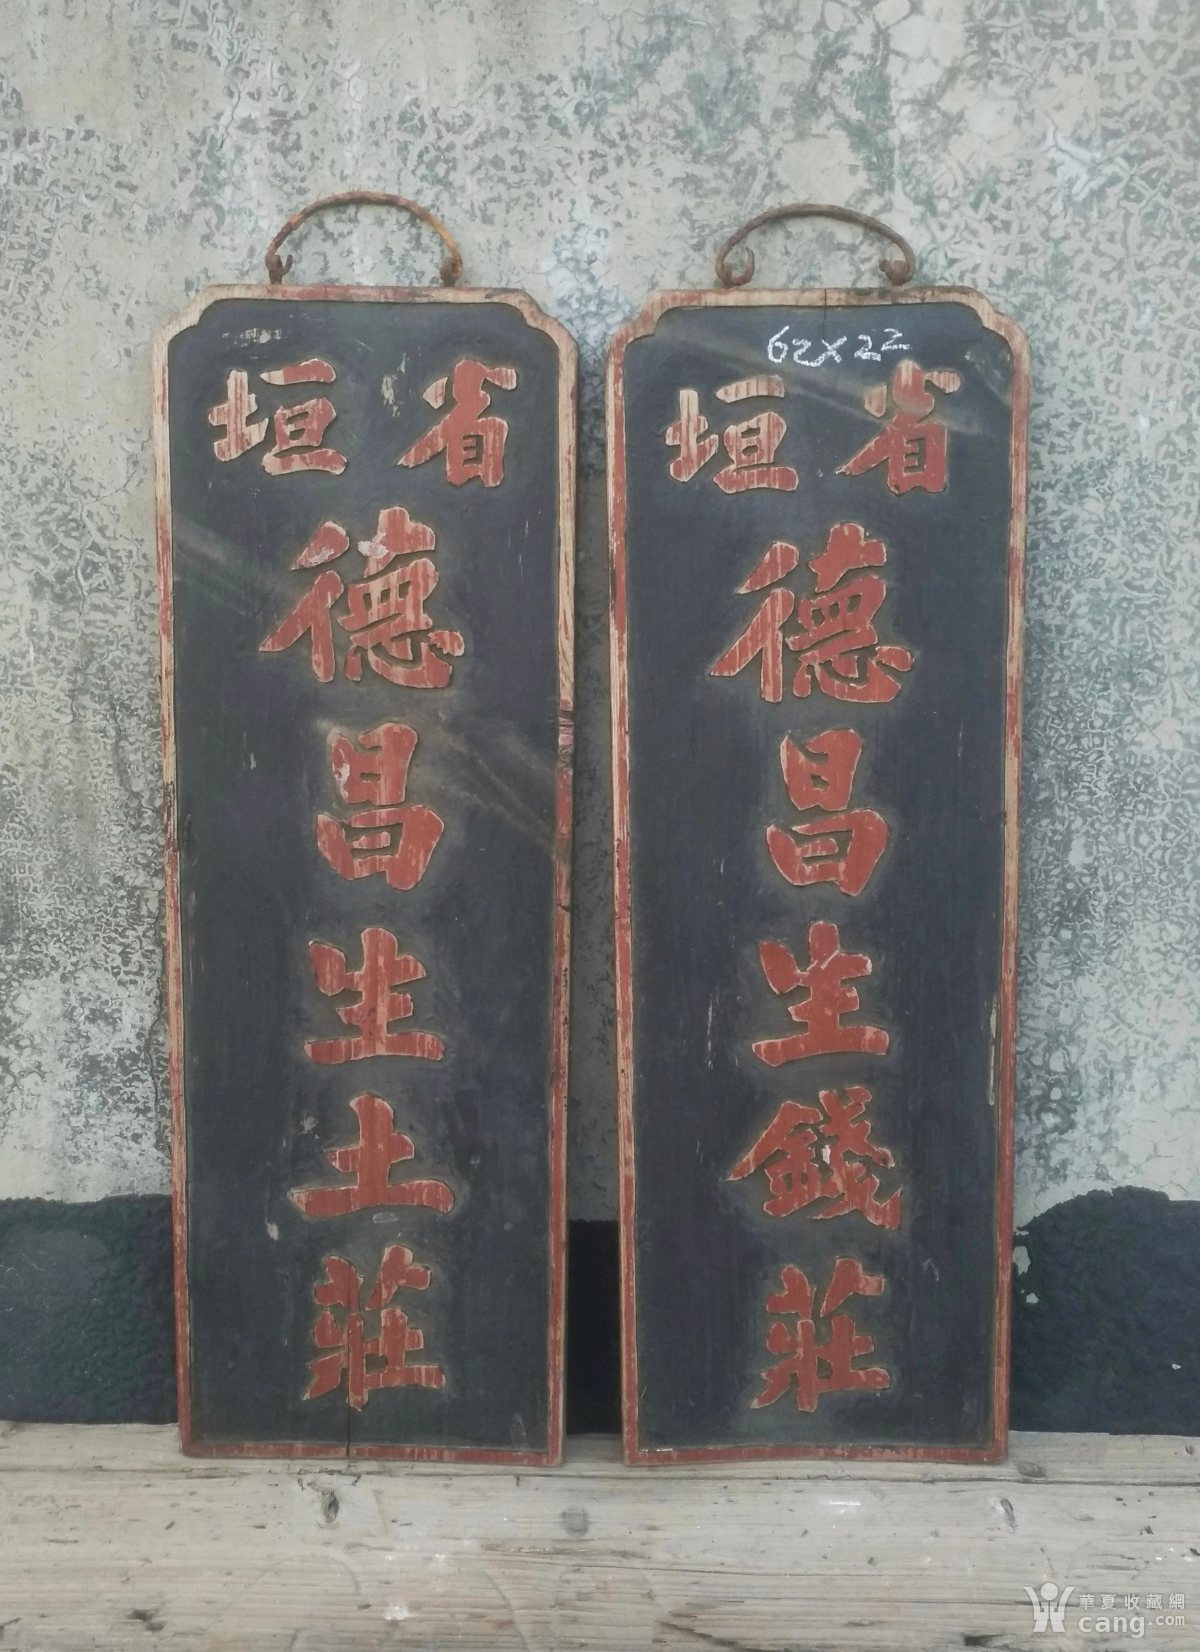 省垣
德昌生土莊
62×22
省垣
德昌生錢莊
華夏收藏網
cang.com